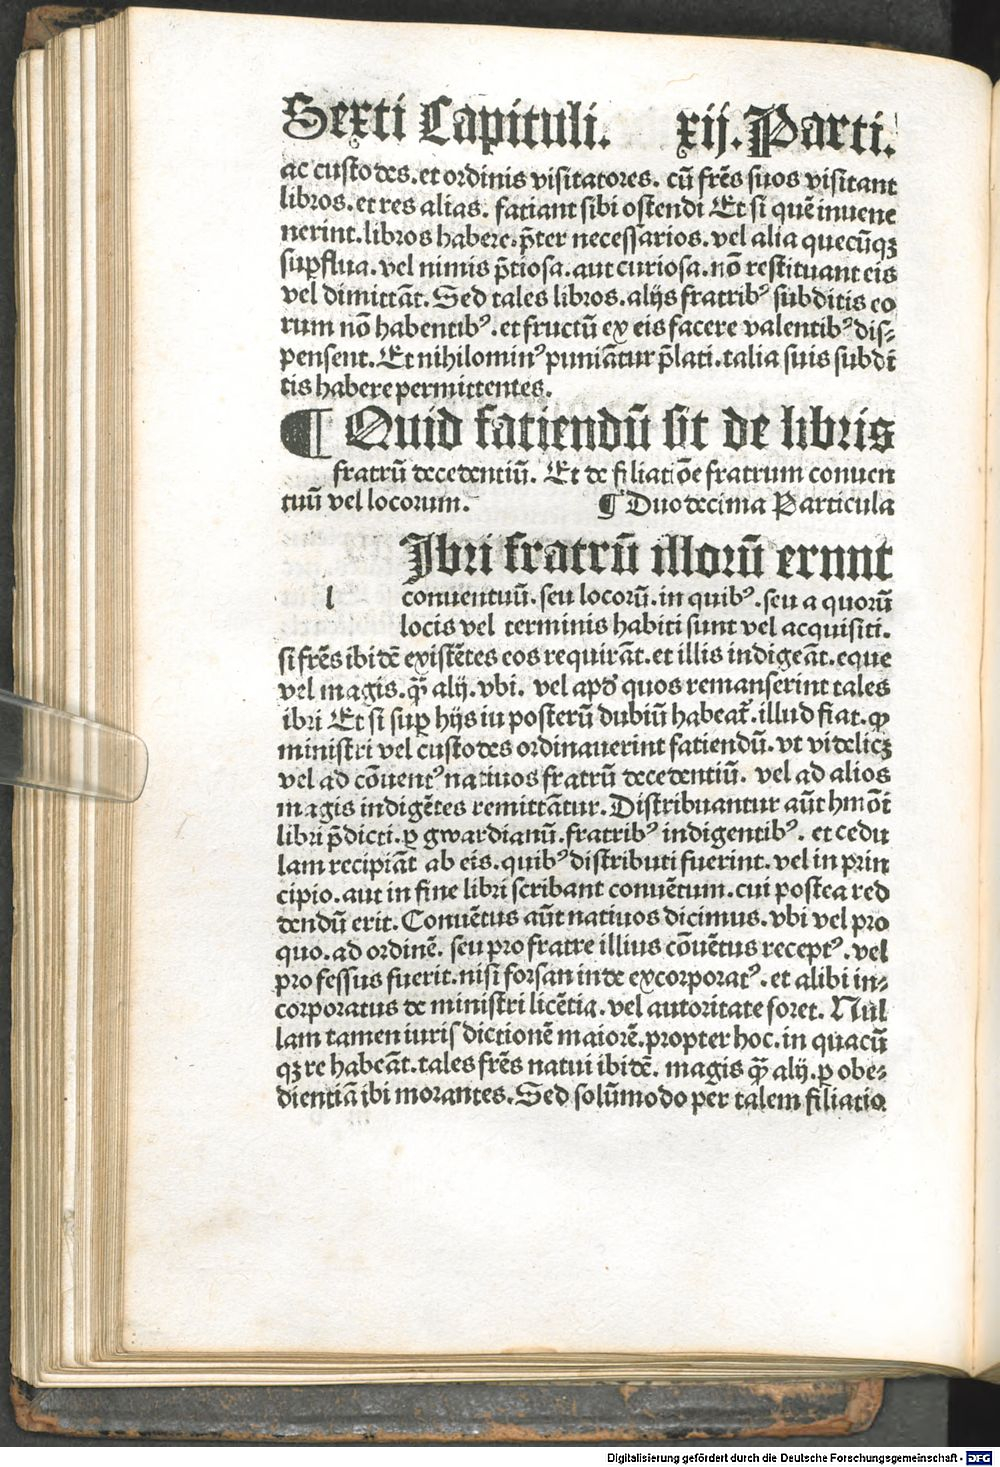 Sexti Capituli. xij. Parti.
ac custodes. et ordinis visitatores. cū frēs suos visitant
libros. et res alias. fatiant sibi ostendi Et si quē inuene
nerint. libros habere. p̄ter necessarios. vel alia quecūqꝫ
suꝑflua. vel nimis p̄tiosa. aut curiosa. nō restituant eis
vel dimittāt. Sed tales libros. alijs fratribꝰ subditis eo
rum nō habentibꝰ. et fructū ex eis facere valentibꝰ dis⸗
pensent. Et nihilominꝰ puniātur p̄lati. talia suis subdi
tis habere permittentes.
¶ Quid fatiendū sit de libris
fratrū decedentiū. Et de filiatiōe fratrum conuen
tuū vel locorum. ¶ Duodecima Particula
Jbri fratrū illorū ernnt
l conuentuū. seu locorū. in quibꝰ. seu a quorū
locis vel terminis habiti sunt vel acquisiti.
si frēs ibidē existētes eos requirāt. et illis indigeāt. eque
vel magis. q̄ alij. vbi. vel apd̕ quos remanserint tales
ibri Et si suꝑ hijs iu posterū dubiū habeat̄. illud fiat. ꝙ
ministri vel custodes ordinauerint fatiendū. vt videlicꝫ
vel ad cōuentꝰ natiuos fratrū decedentiū. vel ad alios
magis indigētes remittātur. Distribuantur aūt hmōi
libri p̄dicti. ꝑ gwardianū. fratribꝰ indigentibꝰ. et cedu
lam recipiāt ab eis. quibꝰ distributi fuerint. vel in prin
cipio. aut in fine libri scribant conuētum. cui postea red
dendū erit. Conuētus aūt natiuos dicimus. vbi vel pro
quo. ad ordinē. seu pro fratre illius cōuētus receptꝰ. vel
professus fuerit. nisi forsan inde excorporatꝰ. et alibi in⸗
corporatus de ministri licētia. vel autoritate foret. Nul
lam tamen iuris dictionē maiorē. propter hoc. in quacū
qꝫ re habeāt. tales frēs natiui ibidē. magis q̄ alij. ꝑ obe⸗
dientiā ibi morantes. Sed solūmodo per talem filiatio
Digitalisierung gefördert durch die Deutsche Forschungsgemeinschaft - DFG